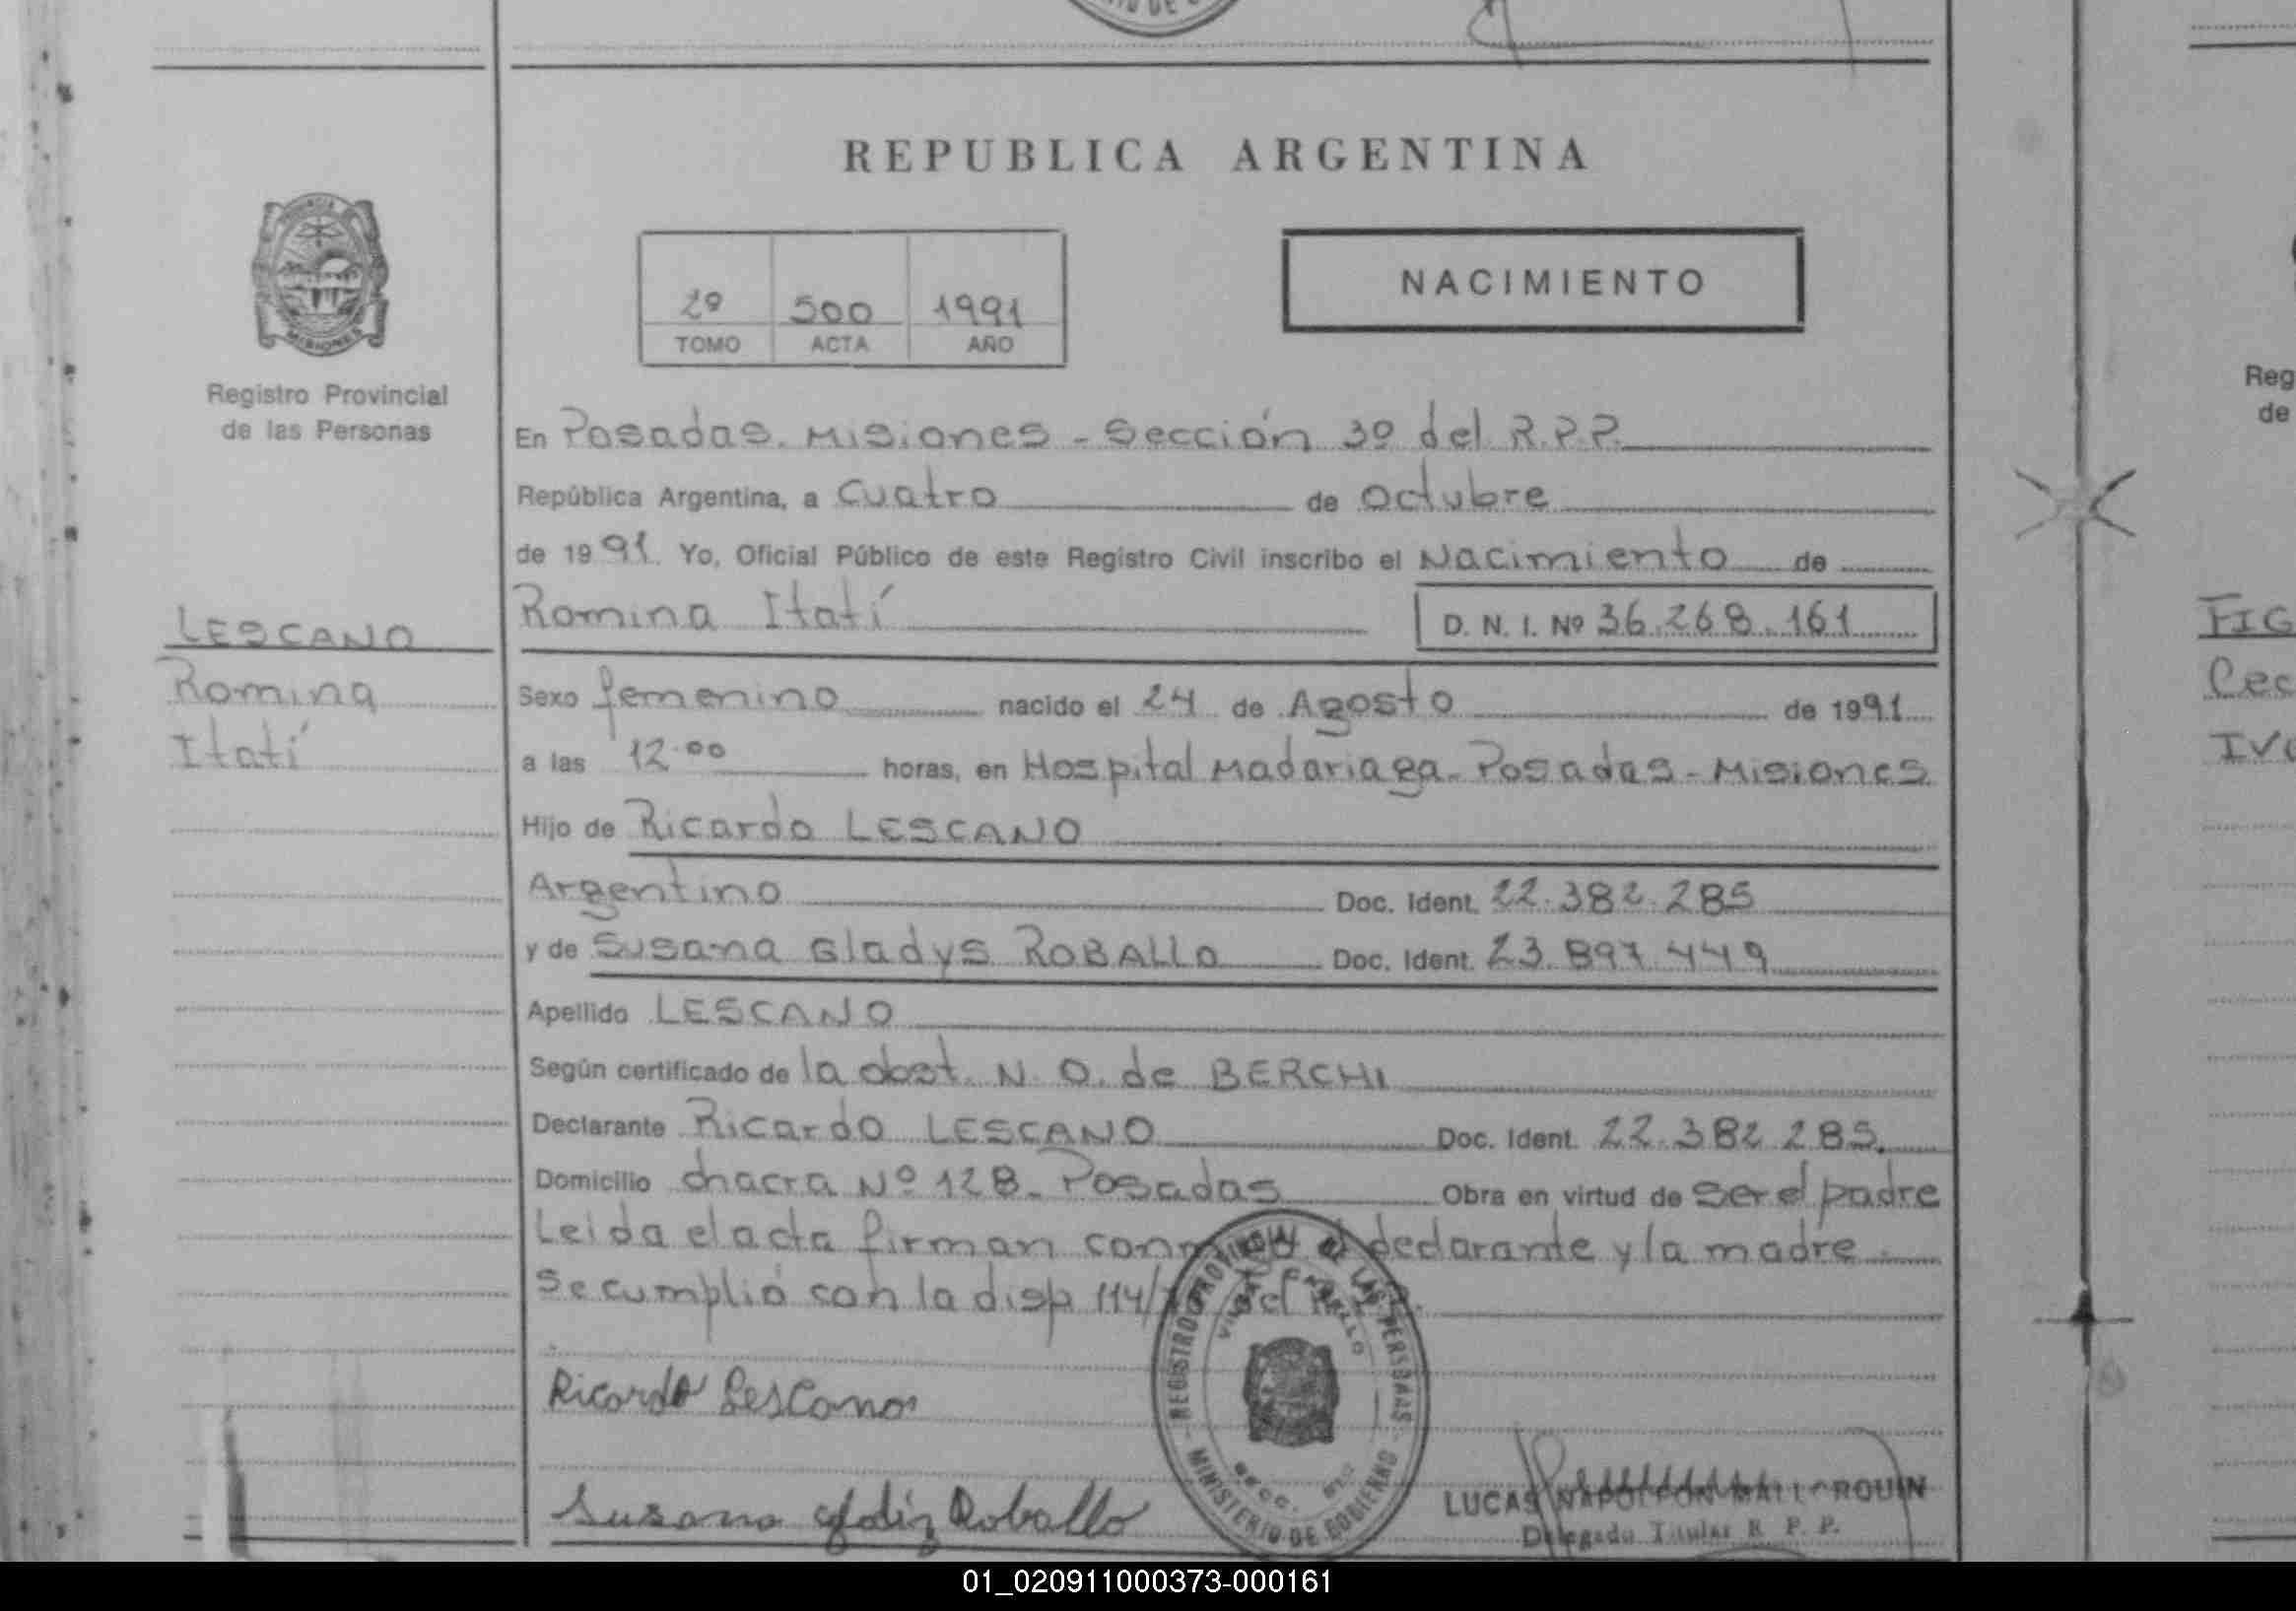 REPUBLICA ARGENTINA
NACIMIENTO
2º 500 1991
TOMO ACTA AÑO
MISIONES
Registro Provincial
de las Personas
LESCANO
Romina
Itatí
En Posadas. Misiones - Sección 3º del R.P.P.
República Argentina, a Cuatro de Octubre
de 1991. Yo, Oficial Público de este Registro Civil inscribo el Nacimiento de
Romina Itatí D. N. I. Nº 36.268.161
Sexo femenino nacido el 24 de Agosto de 1991
a las 12.00 horas, en Hospital Madariaga - Posadas - Misiones
Hijo de Ricardo LESCANO
Argentino Doc. Ident. 22.382.285
y de Susana Gladys ROBALLO Doc. Ident. 23.897.449
Apellido LESCANO
Según certificado de la obst. N. O. de BERCHI
Declarante Ricardo LESCANO Doc. Ident. 22.382.285.
Domicilio chacra Nº 128 - Posadas Obra en virtud de ser el padre
Leida el acta firman conmigo el declarante y la madre
Se cumplió con la disp 114/ del
Ricardo Lescano
Susana Roballo
REGISTRO PROVINCIAL DE LAS PERSONAS
MINISTERIO DE GOBIERNO
LUCAS NAPOLEON
Delegado Titular R. P. P.
Reg
de
FIG
Cec
01_020911000373-000161